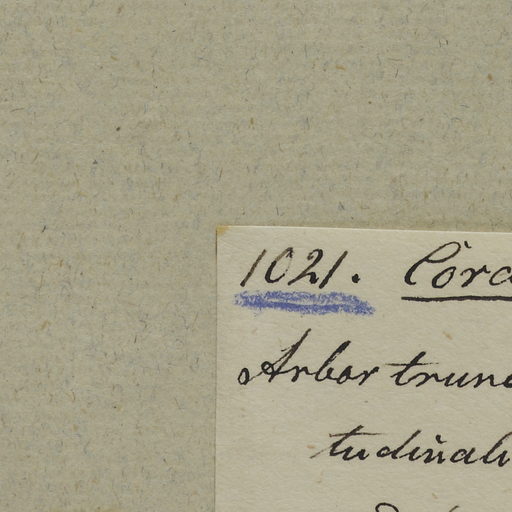 1021. Cord
Arbor trunc
tudinali